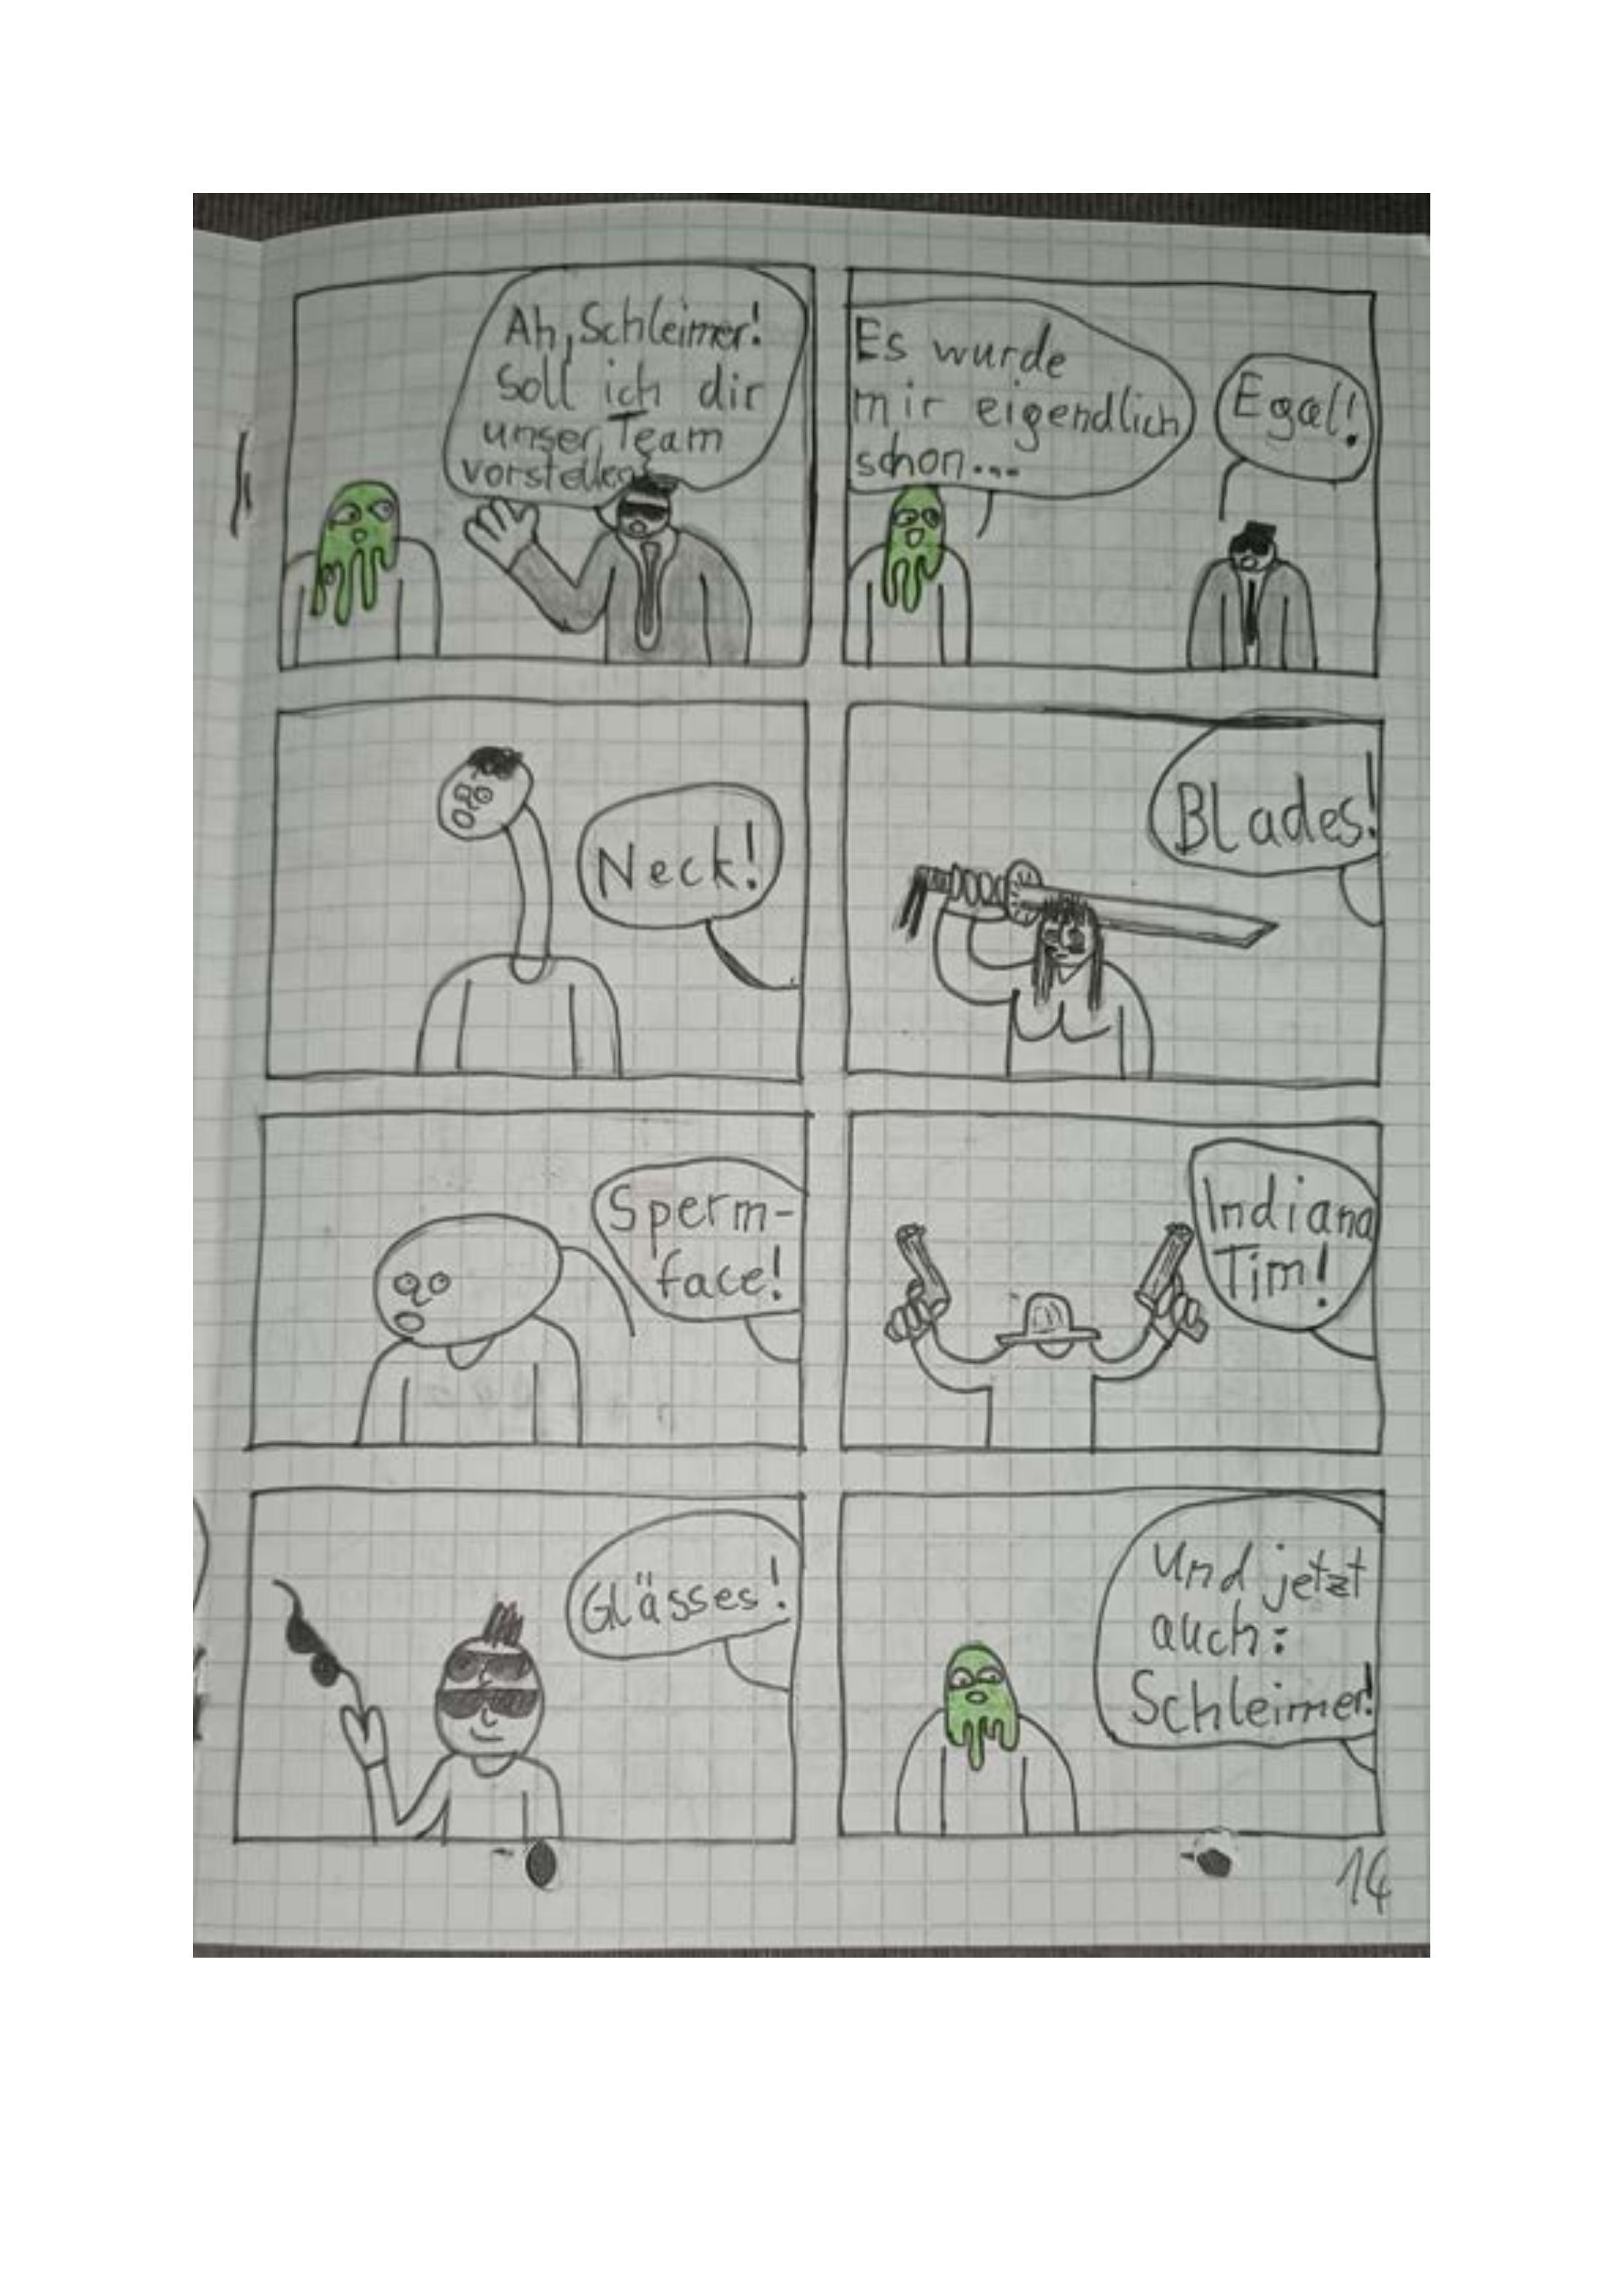 Ah, Schleimer!
Soll ich dir
unser Team
vorstellen?
Es wurde
mir eigendlich
schon...
Egal!
Neck!
Blades!
Sperm-
face!
Indiana
Tim!
Glässes!
Und jetzt
auch:
Schleimer!
14